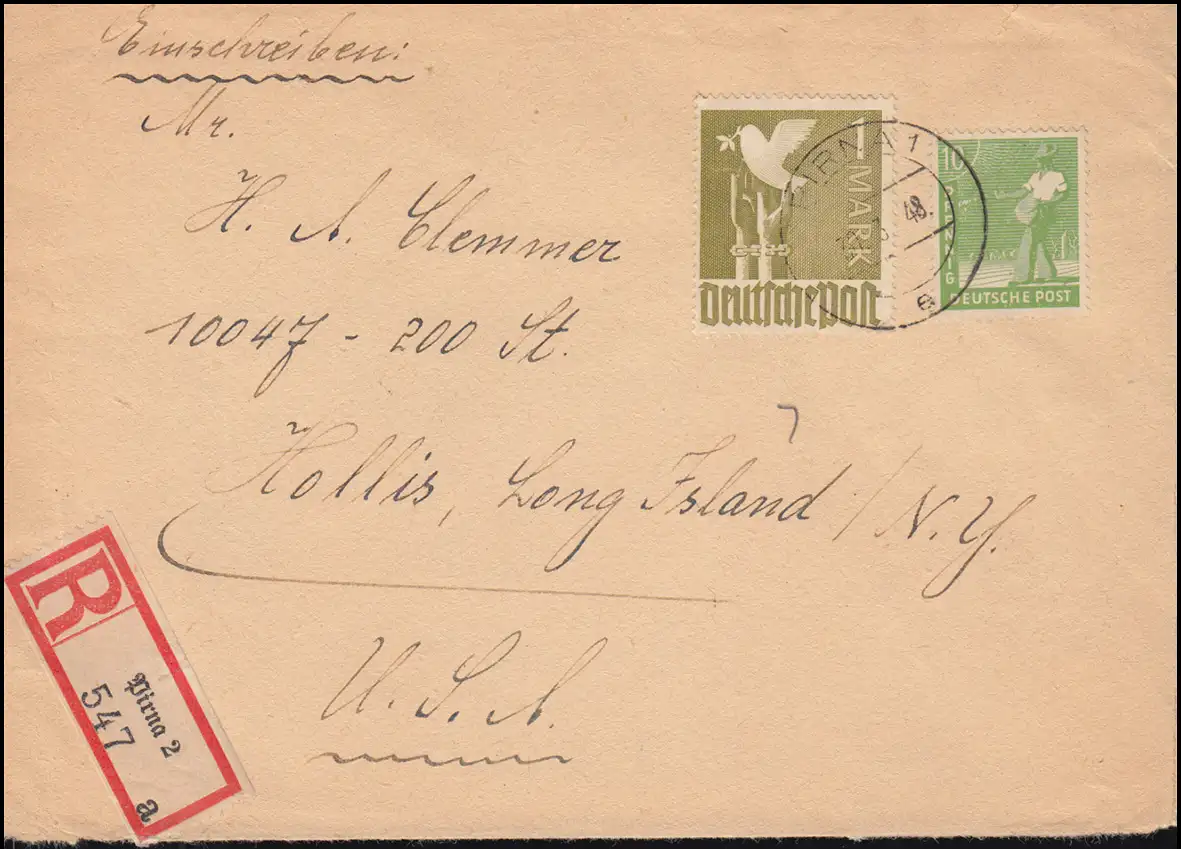 Einschreiben:
Mr.
H. A. Clemmer
10047 - 200 St.
Hollis, Long Island / N.Y.
U.S.A.
1 MARK
Deutsche Post
10
PFENNIG
DEUTSCHE POST
PIRNA 1
48.
e
R
Pirna 2
547
a